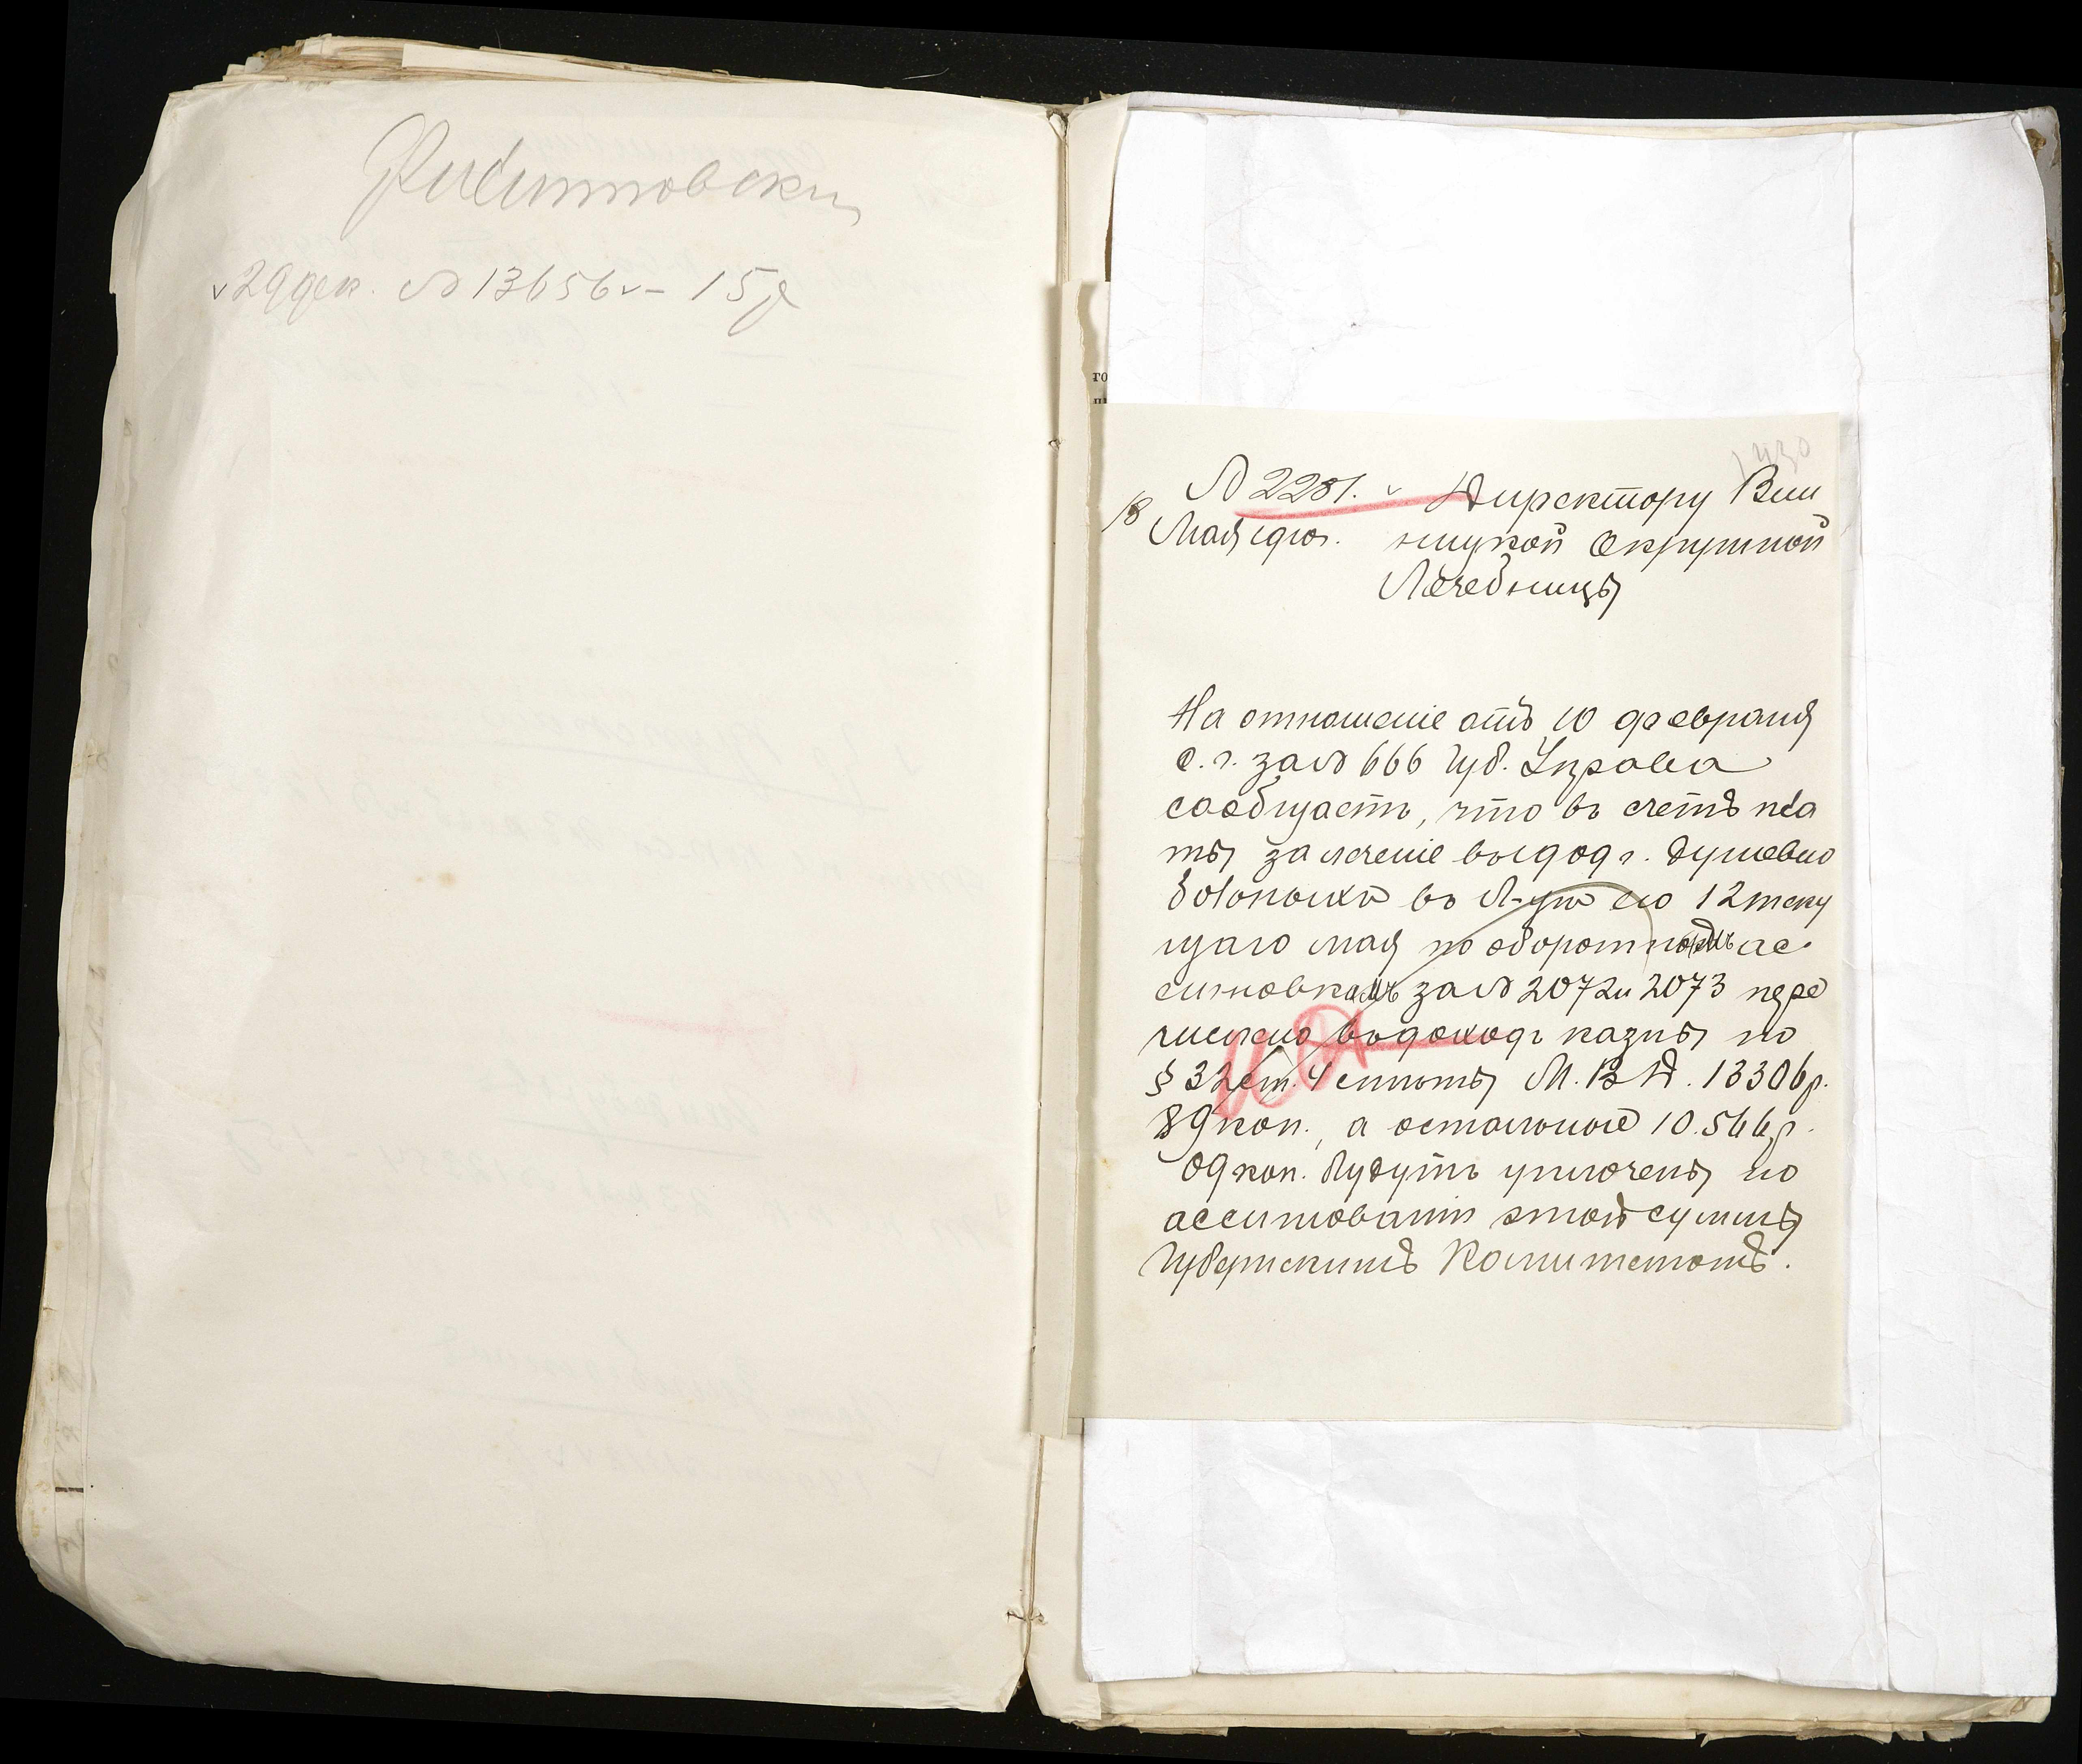 Филиповски
29 дек. № 13656 – 15 р
го
1430
№ 2281. Директору Вин
18 Мая 1910 г. ницкой Окружной
Лечебницы
На отношеніе отъ 10 февраля
с. г. за № 666 Губ. Управа
сообщаетъ, что въ счетъ пла
ты за леченіе въ 1909 г. душевно
больныхъ въ л-цѣ ею 12 теку
щаго мая по оборотнымъ ас-
сигновкамъ за № 2072 и 2073 пере
числено въ доходъ казны по
§ 32 ст. 4 смѣты М. В. Д. 13306 р.
89 коп., а остальные 10.566 р.
09 коп. будутъ уплочены по
ассигнованіи этой суммы
Губернскимъ Комитетомъ.